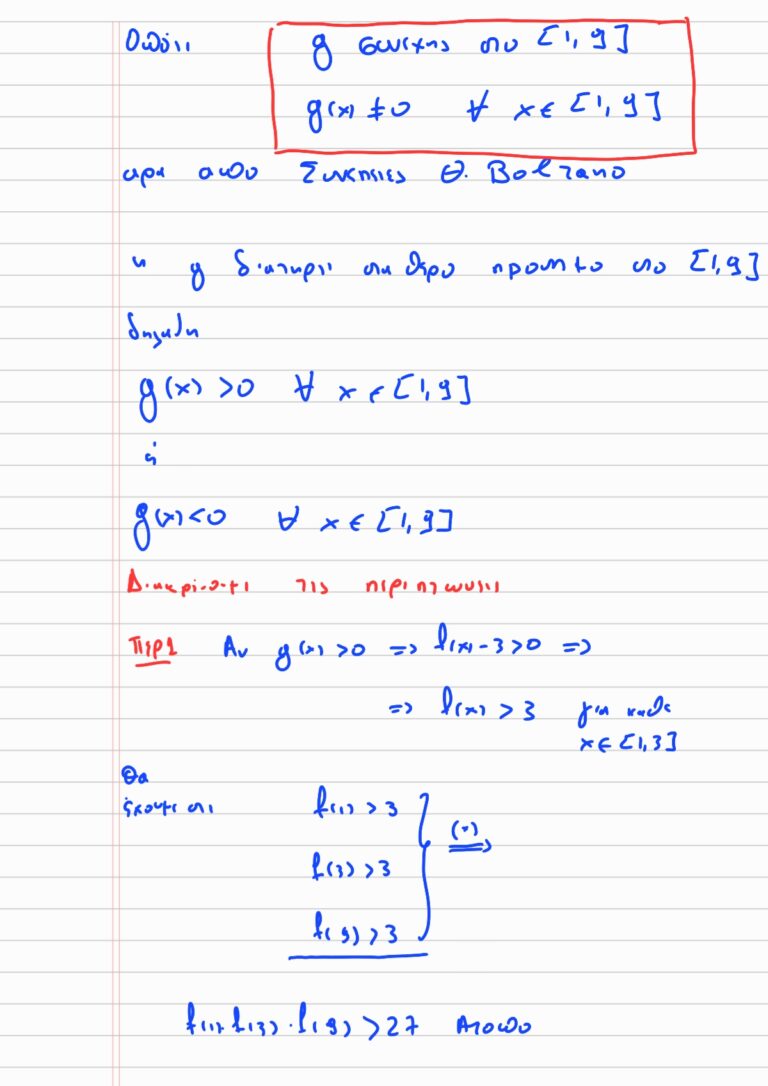 Οπότε g συνεχης στο [1, 9]
g(x) ≠ 0 ∀ x ∈ [1, 9]
αρα απο Συνεπειες Θ. Bolzano
η g διατηρει σταθερο προσημο στο [1, 9]
δηλαδη
g(x) > 0 ∀ x ∈ [1, 9]
ή
g(x) < 0 ∀ x ∈ [1, 9]
Διακρίνουμε τις περιπτωσεις
Περ1 Αν g(x) > 0 => f(x) - 3 > 0 =>
=> f(x) > 3 για καθε
x ∈ [1, 3]
Θα
έχουμε οτι f(1) > 3
(·) =>
f(3) > 3
f(9) > 3
f(1) · f(3) · f(9) > 27 Ατοπο